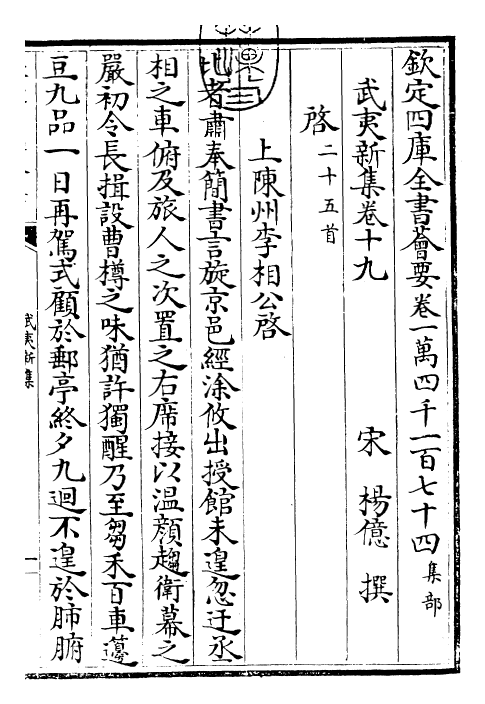 欽定四庫全書薈要卷一萬四千一百七十四 集部
武夷新集卷十九
宋 楊億 撰
啓 二十五首
上陳州李相公啓
此者肅奉簡書言旋京邑經涂攸出授館未遑忽迂丞
相之車俯及旅人之次置之右席接以温顔趨衛幕之
嚴初令長揖設曹樽之味猶許獨醒乃至芻禾百車籩
豆九品一日再駕式顧於郵亭終夕九迴不遑於肺腑
武夷新集
一